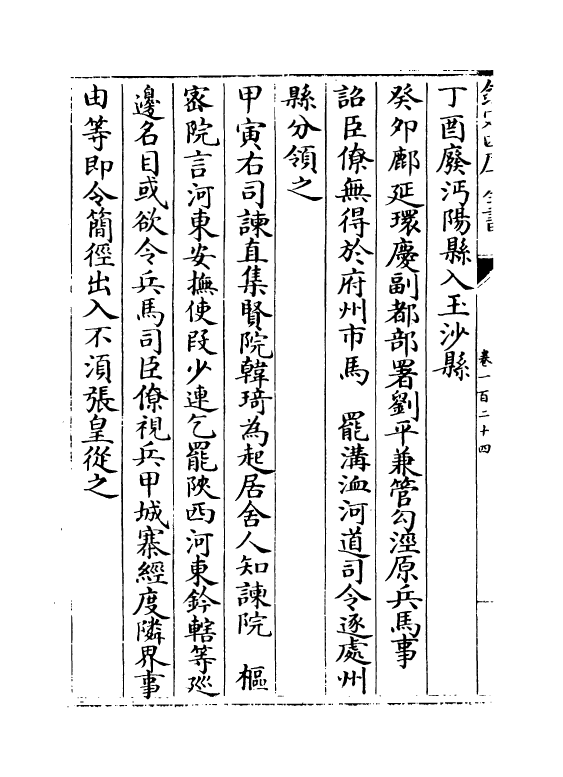 丁酉廢沔陽縣入玉沙縣
癸夘鄜延環慶副都部署劉平兼管勾涇原兵馬事
詔臣僚無得於府州市馬　罷溝洫河道司令逐處州
縣分領之
甲寅右司諫直集賢院韓琦為起居舍人知諫院　樞
宻院言河東安撫使段少連乞罷陜西河東鈐轄等廵
邊名目或欲令兵馬司臣僚視兵甲城寨經度隣界事
由等即令簡徑出入不須張皇從之
卷一百二十四